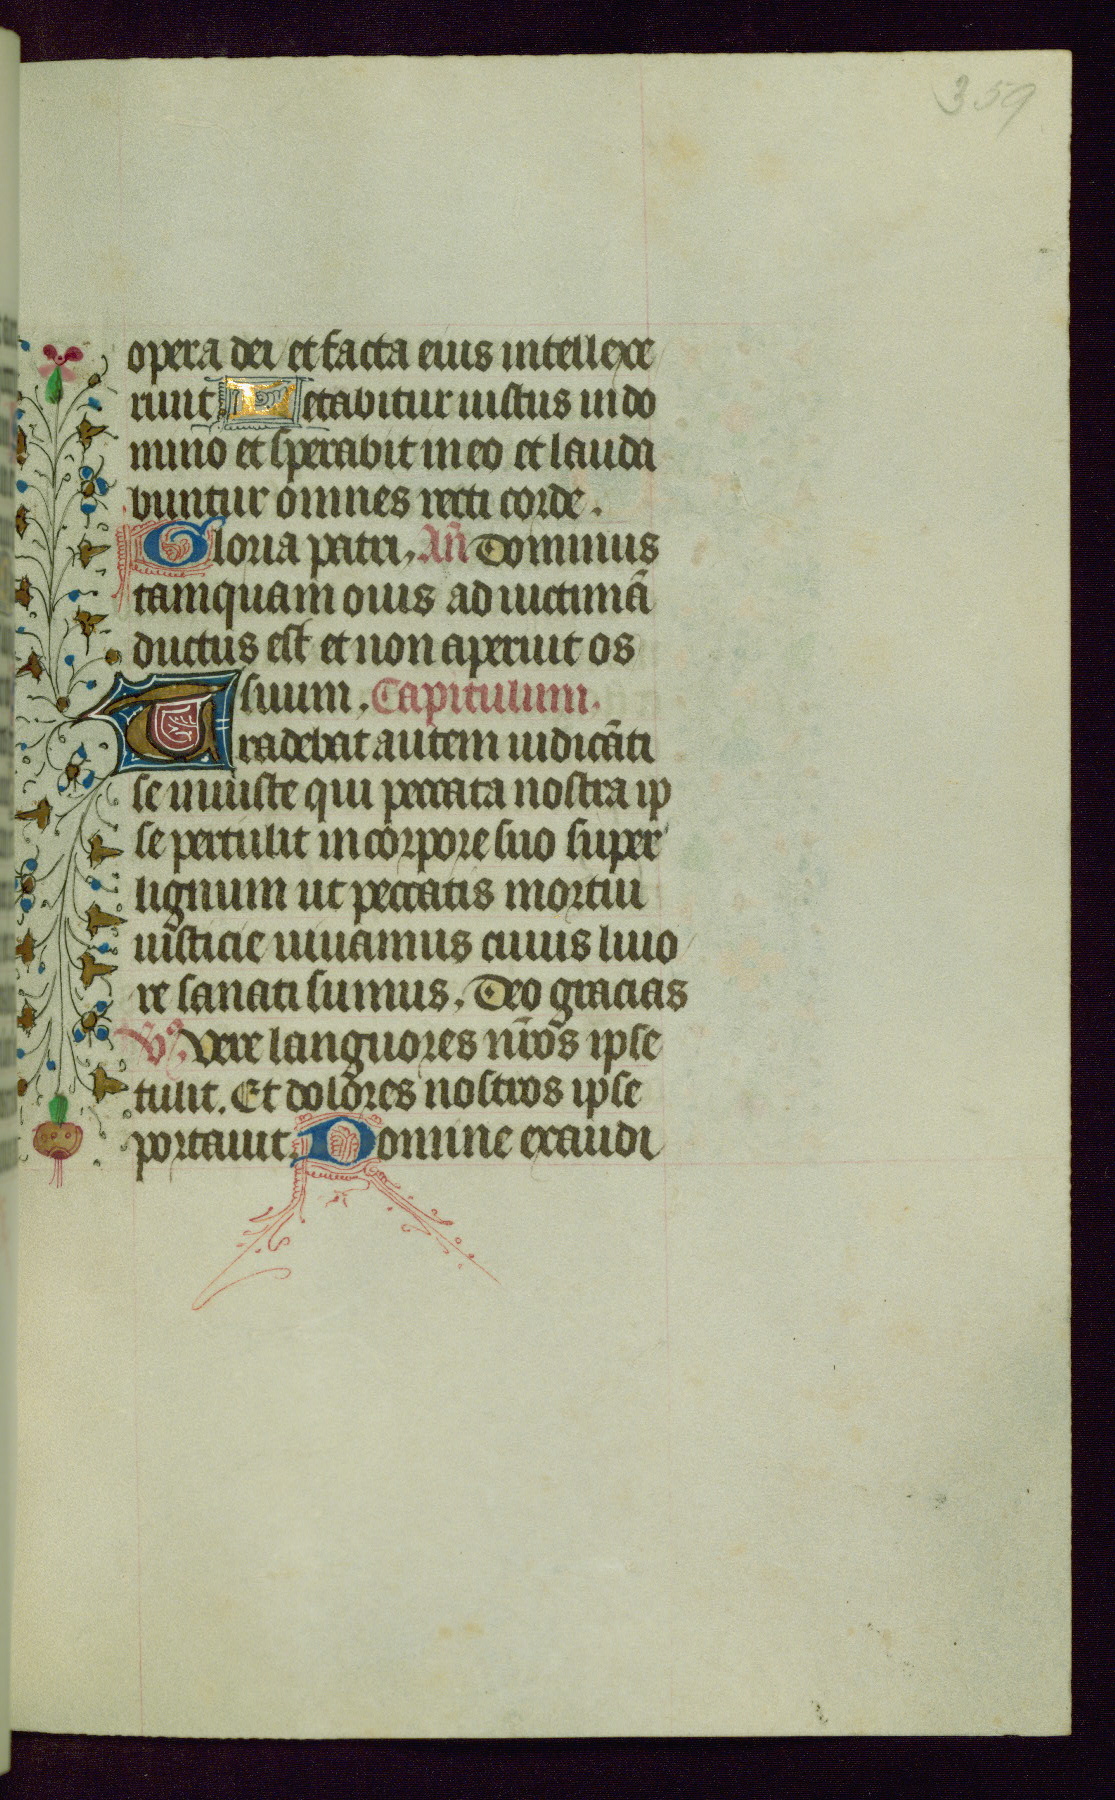 359
opera dei et facta eius intellexe
runt. Letabitur iustus in do
mino et sperabit in eo et lauda
buntur omnes recti corde.
Gloria patri, Añ Dominus
tamquam ouis ad uictimā
ductus est et non aperuit os
suum. Capitulum.
Tradebat autem iudicāti
se iniuste qui peccata nostra ip
se pertulit in corpore suo super
lignum ut peccatis mortui
iusticie uiuamus cuius liuo
re sanati sumus. Deo gracias
Vs. Vere languores nr̄os ipse
tulit. Et dolores nostros ipse
portauit. Domine exaudi